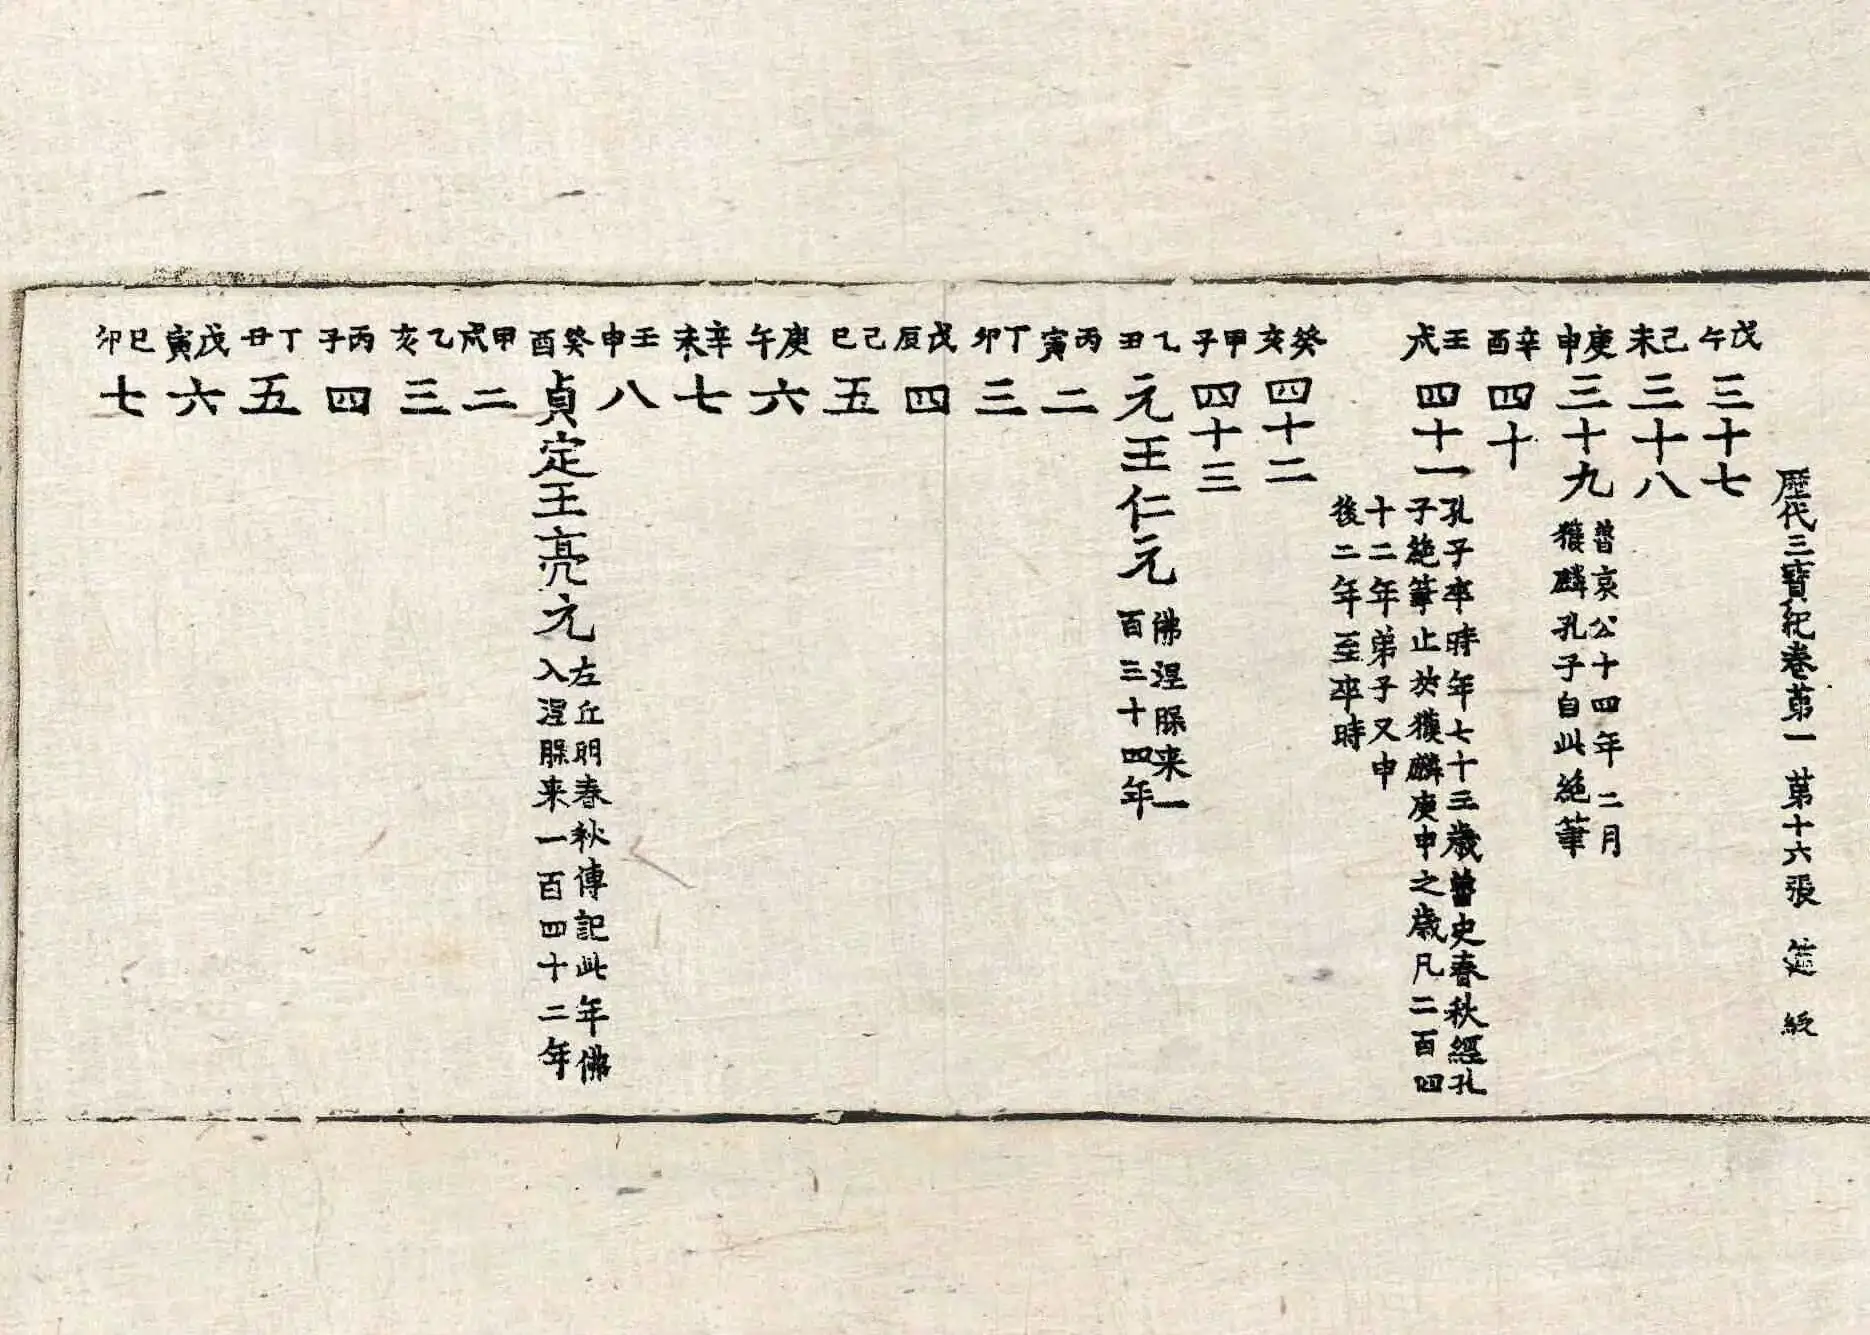 歴代三寶紀卷第一 第十六張 筵 紙
戊午 三十七
己未 三十八
庚申 三十九 魯哀公十四年二月
獲麟孔子自此絶筆
辛酉 四十
壬戌 四十一 孔子卒時年七十三歲魯史春秋經孔
子絶筆止於獲麟庚申之歲凡二百四
十二年弟子又申
後二年至卒時
癸亥 四十二
甲子 四十三
乙丑 元王仁元 佛涅腺来一
百三十四年
丙寅 二
丁卯 三
戊辰 四
己巳 五
庚午 六
辛未 七
壬申 八
癸酉 貞定王亮元 左丘明春秋傳記此年佛
入涅腺来一百四十二年
甲戌 二
乙亥 三
丙子 四
丁丑 五
戊寅 六
己卯 七